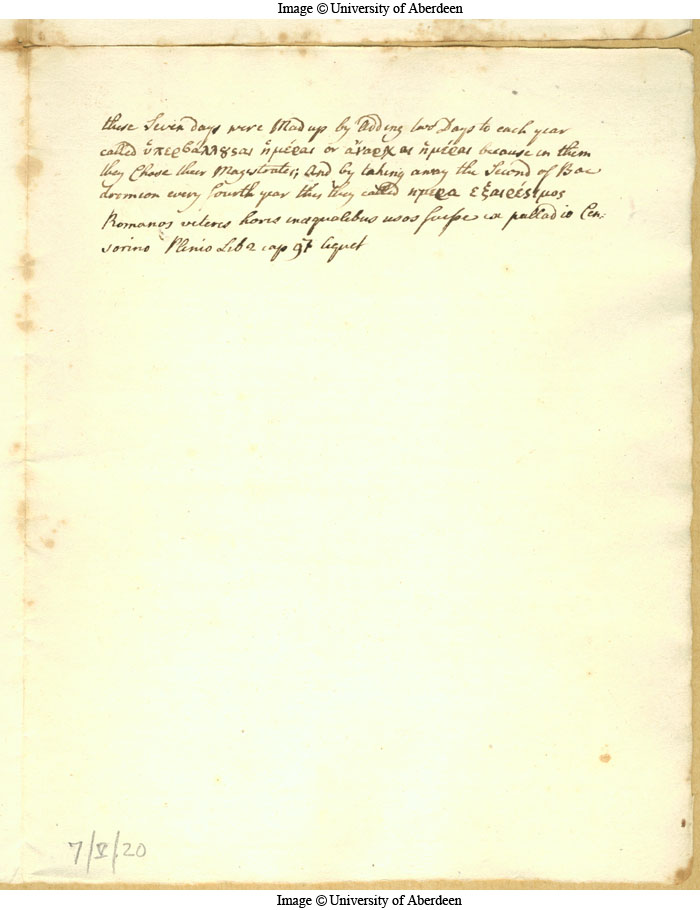 Image © University of Aberdeen
these Seven days were Mad up by Adding two Days to each year
called ὑπερβαλλȣσαι ἡμέραι or ἄναρχαι ἡμέραι because in them
they Chose ther Magistrates; And by taking away the Second of Boe
dromion every fourth year this they called ημέρα εξαιρέσιμος
Romanos veteres horis inæqualibus usos fuisse ex palladio Cen-
sorino Plinio Lib 2 cap 97 liquet
7/V/20
Image © University of Aberdeen